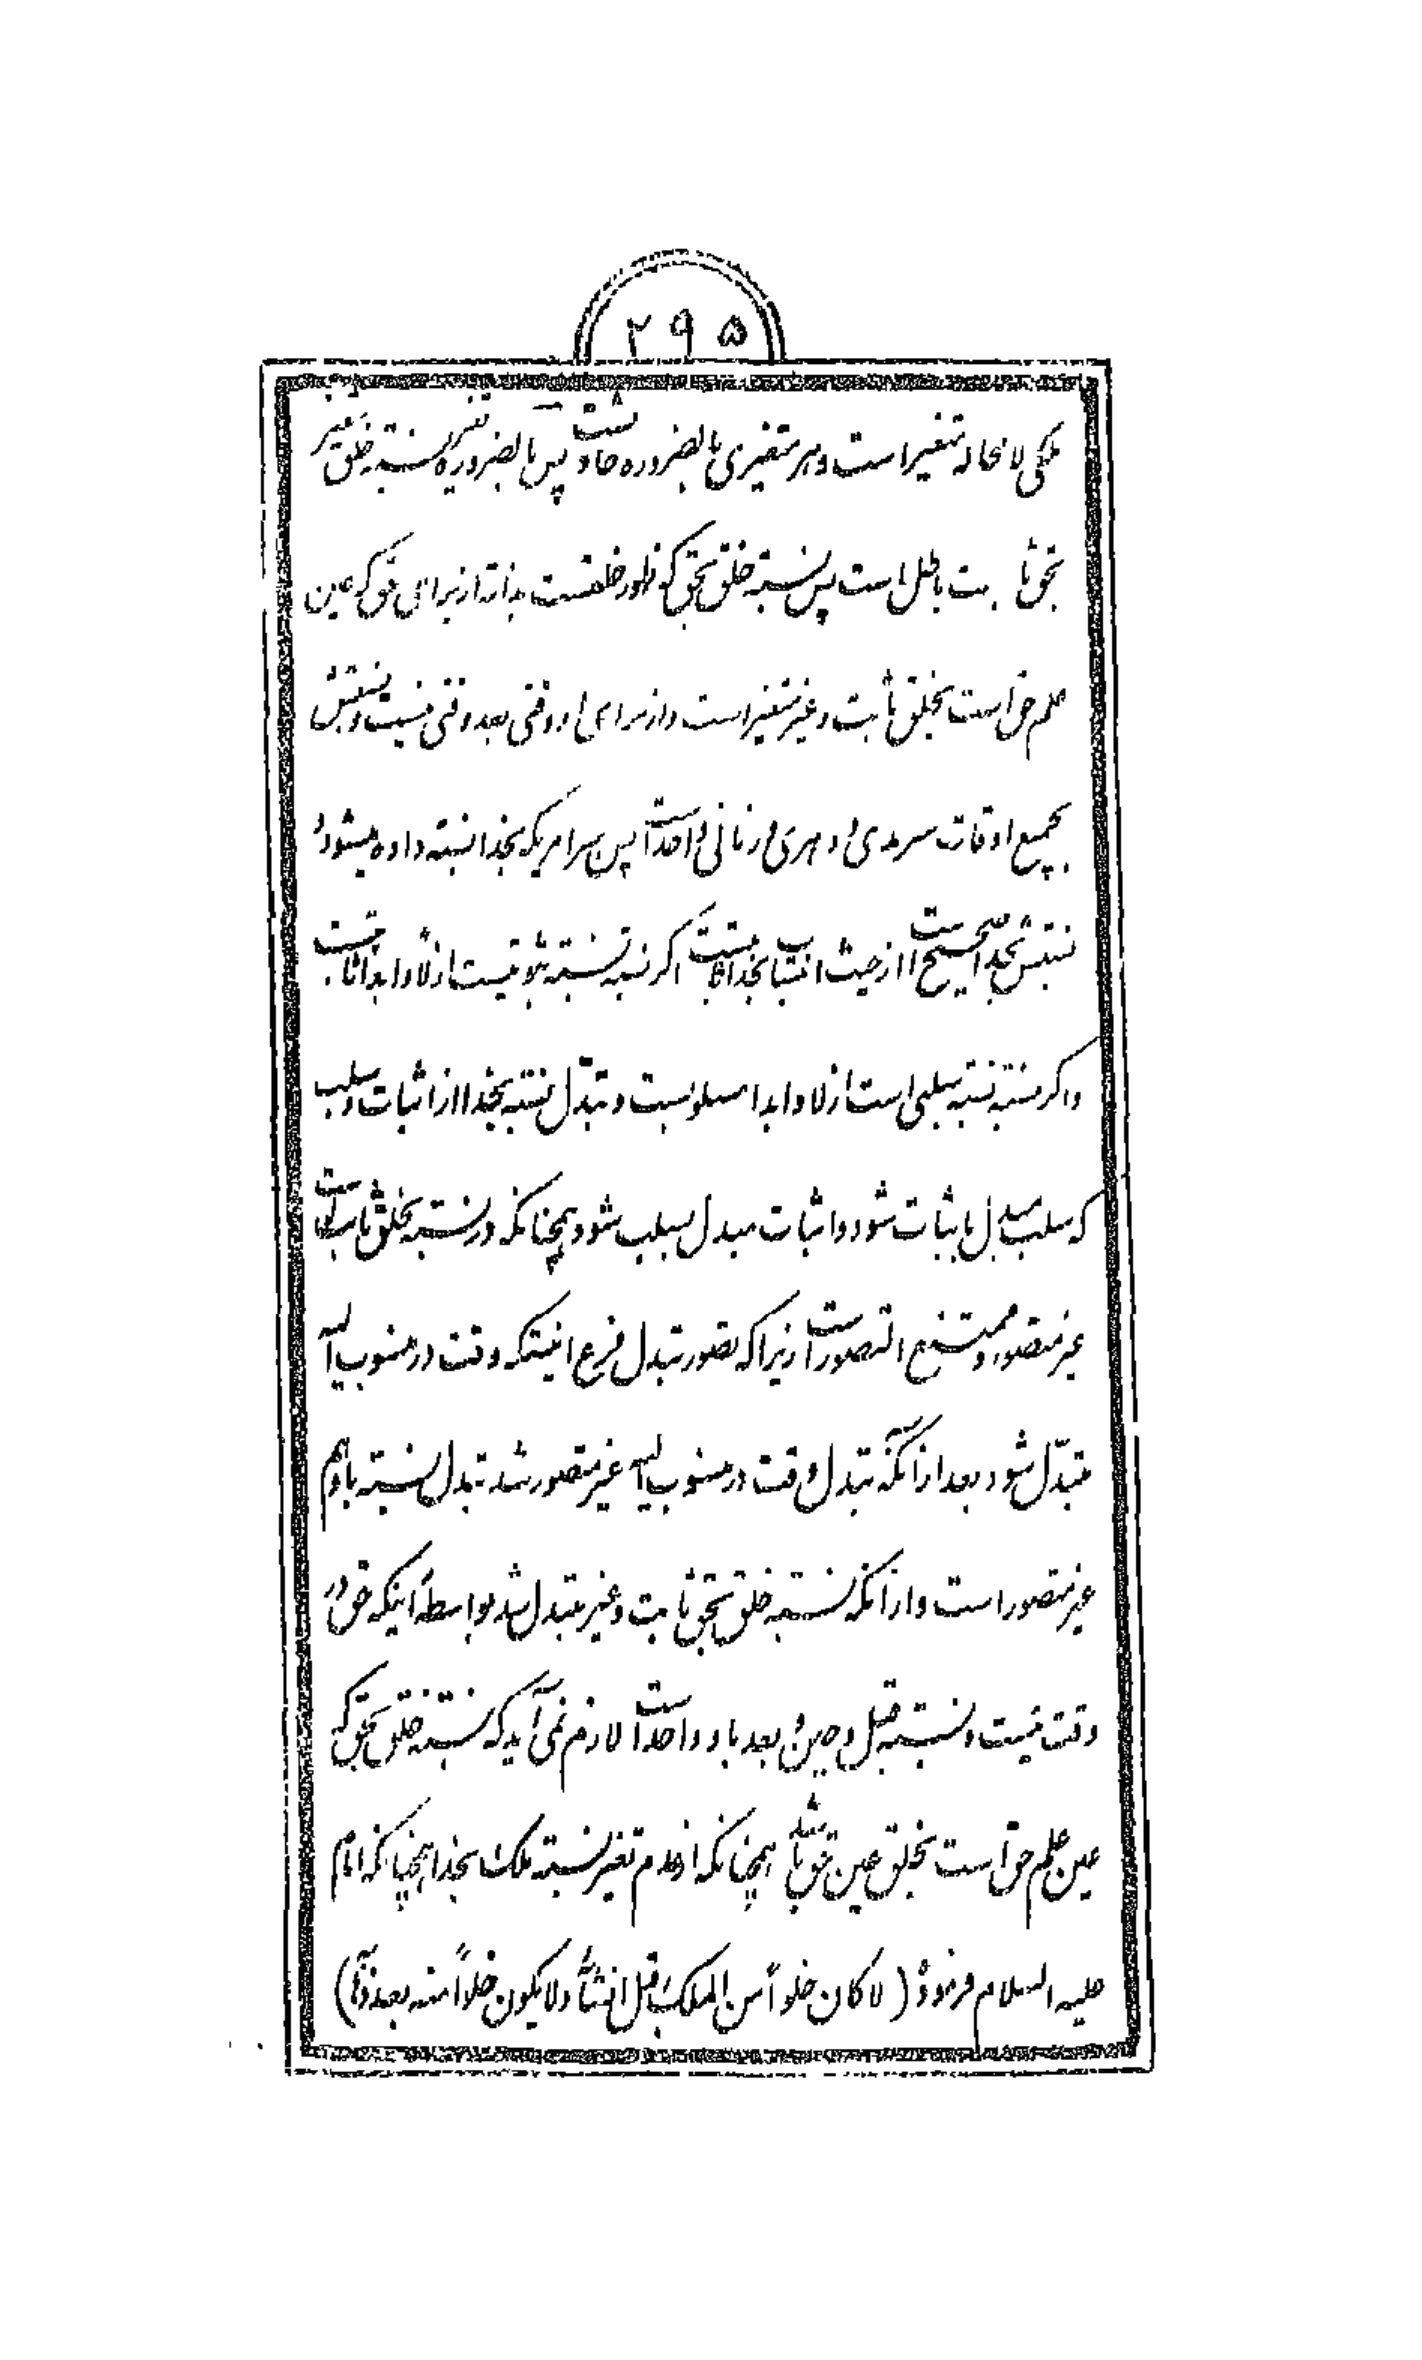 ۲۹۵
ملکی لا محاله متغیر است و هر متغیری بالضروره حادث است پس بالضروره نسبة خلق
بحق ثابت باطل است پس نسبة خلق بحق که ظهور خلقست بذاته از برای حق که عین
علم حق است بخلق ثابت و غیر متغیر است و از برای او وقتی بعد وقتی نیست و نسبتش
بجمیع اوقات سرمدی و دهری و زمانی واحد است پس هر امریکه بخدا نسبة داده میشود و
نسبتش بخدا صحیح است از حیث انتساب بخدا ثابت است اگر نسبة نسبة ثبوتیست ازلاً و ابداً ثابت است
و اگر نسبة نسبة سلبی است ازلا و ابدا مسلوبست و تبدّل نسبة بخدا از اثبات و سلب
که سلب مبدل باثبات شود و اثبات مبدل بسلب شود همچنانکه در نسبة بخلق ثابت است
غیر متصور و ممتنع التصور است زیرا که تصور تبدل فرع اینستکه وقت در منسوب الیه
متبدّل شود بعد از آنکه تبدل وقت در منسوب الیه غیر متصور شد تبدل نسبة باو هم
غیر متصور است و از آنکه نسبة خلق بحق ثابت و غیر متبدل شد بواسطهٔ اینکه حق در
وقت نیست و نسبة قبل و حین و بعد باو واحد است لازم نمی آید که نسبة خلق بحق که
عین علم حق است بخلق عین حق باشد همچنانکه از عدم تغیر نسبة ملک بخدا همچنانکه امام
علیه السلام فرموده (لا کان خلواً من الملک قبل انشائه ولا یکون خلواً منه بعد ذهابه)